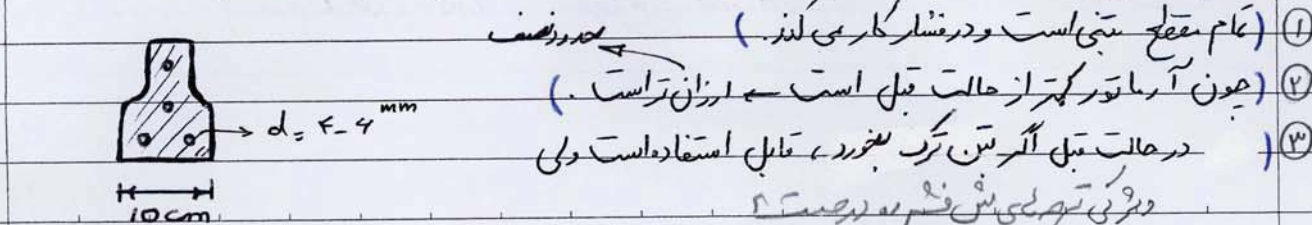 ① (تمام مقطع بتنی است و در فشار کار می کند.)
حدود نصف
② (چون آرماتور کمتر از حالت قبل است ← ارزان تر است.)
d = ۴-۶ mm
③ ( در حالت قبل اگر بتن ترک بخورد، قابل استفاده است ولی
10 cm